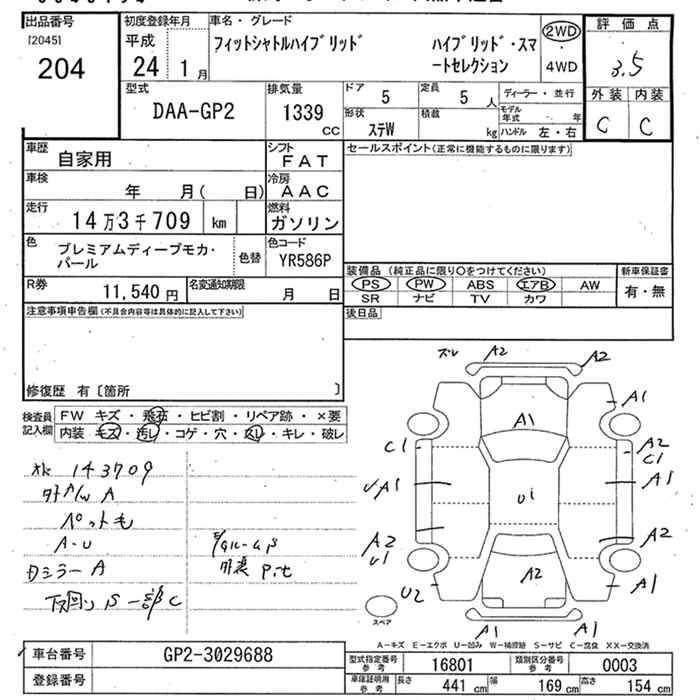 出品番号
[2045]
204
初度登録年月
平成
24 1 月
車名・グレード
フィットシャトルハイブリッド ハイブリッド・スマートセレクション
2WD
・4WD
評価点
3.5
外装 内装
C C
型式
DAA-GP2
排気量
1339
CC
ドア 5
定員 5 人
形状 ステW
積載 kg
ディーラー・並行
モデル年式 年
ハンドル 左・右
車歴 自家用
シフト FAT
車検 年 月( 日)
冷房 AAC
走行 14万3千709 km
燃料 ガソリン
色 プレミアムディープモカ・パール
色替
色コード YR586P
R券 11,540 円
名変通知期限 月 日
セールスポイント(正常に機能するものに限ります)
装備品(純正品に限り○をつけてください)
新車保証書
PS PW ABS エアB AW
SR ナビ TV カワ
有・無
後日品
注意事項申告欄(不具合内容等は具体的に記入して下さい)
修復歴 有〔箇所 〕
検査員記入欄
FW キズ・飛石・ヒビ割・リペア跡・×要
内装 キズ・汚レ・コゲ・穴・ ・キレ・破レ
143709
A
ペット毛
A-U
ミラーA
下回りS一部C
外装 Pit
ズレ A2 A2
A1 A1
C1 A2 C1
A1 A1
U1
A2 U1 A2
U2 A2 A1
A1 A1
スペア
A-キズ E-エクボ U-凹み W-補修跡 S-サビ C-腐食 XX-交換済
車台番号 GP2-3029688
登録番号
型式指定番号 参考 16801
類別区分番号 参考 0003
車庫証明用 参考 長さ 441 cm 幅 169 cm 高さ 154 cm